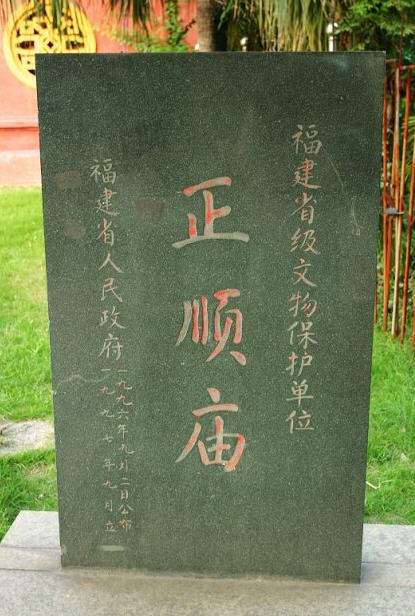 福建省级文物保护单位
正顺庙
福建省人民政府
一九九六年九月二日公布
一九九七年九月立